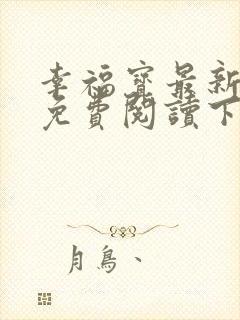 幸福寶最新
免費閱讀下
月鳥、